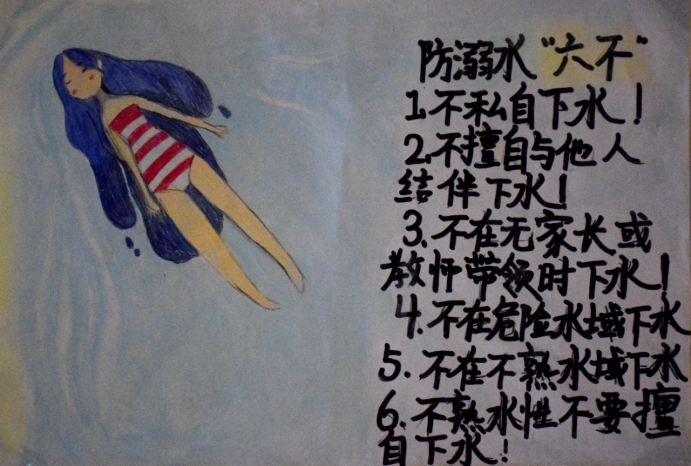 防溺水“六不”
1.不私自下水！
2.不擅自与他人
结伴下水！
3.不在无家长或
教师带领时下水！
4.不在危险水域下水
5.不在不熟水域下水
6.不熟水性不要擅
自下水！